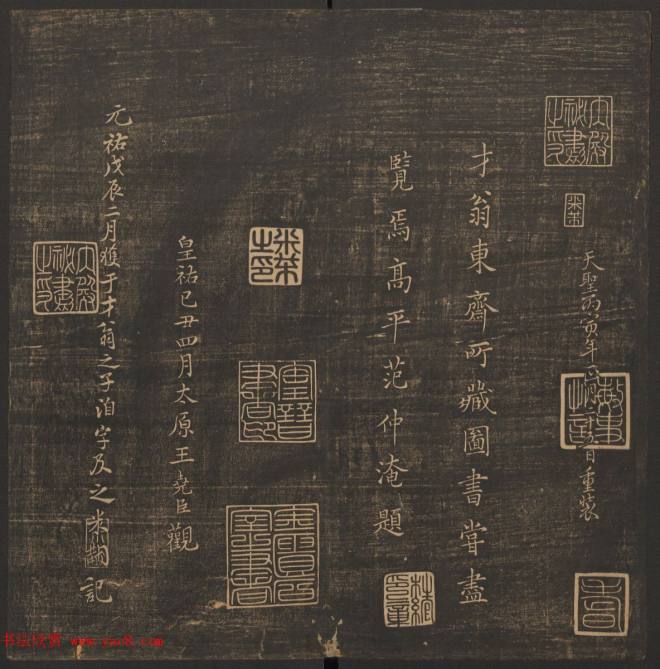 天聖丙寅年正月二十五日重裝
才翁東齋所藏圖書嘗盡
覽焉高平范仲淹題
皇祐己丑四月太原王堯臣觀
元祐戊辰二月獲于才翁之子洎字及之米黻記
米芾
米芾之印
书法欣赏 www.yac8.com